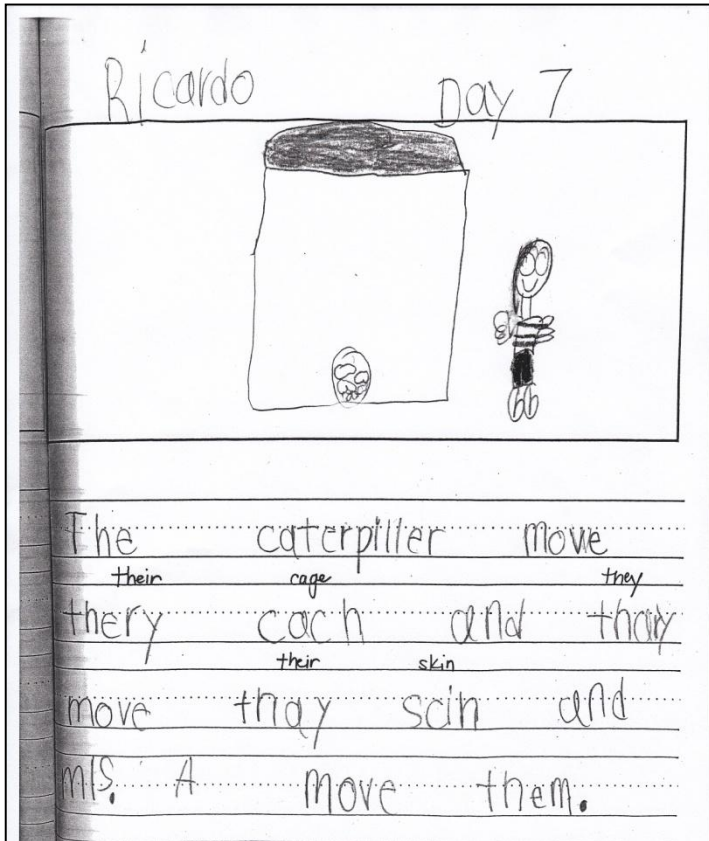 Ricardo Day 7
The caterpiller move
their cage they
thery cach and thay
their skin
move thay scin and
mis. A move them.